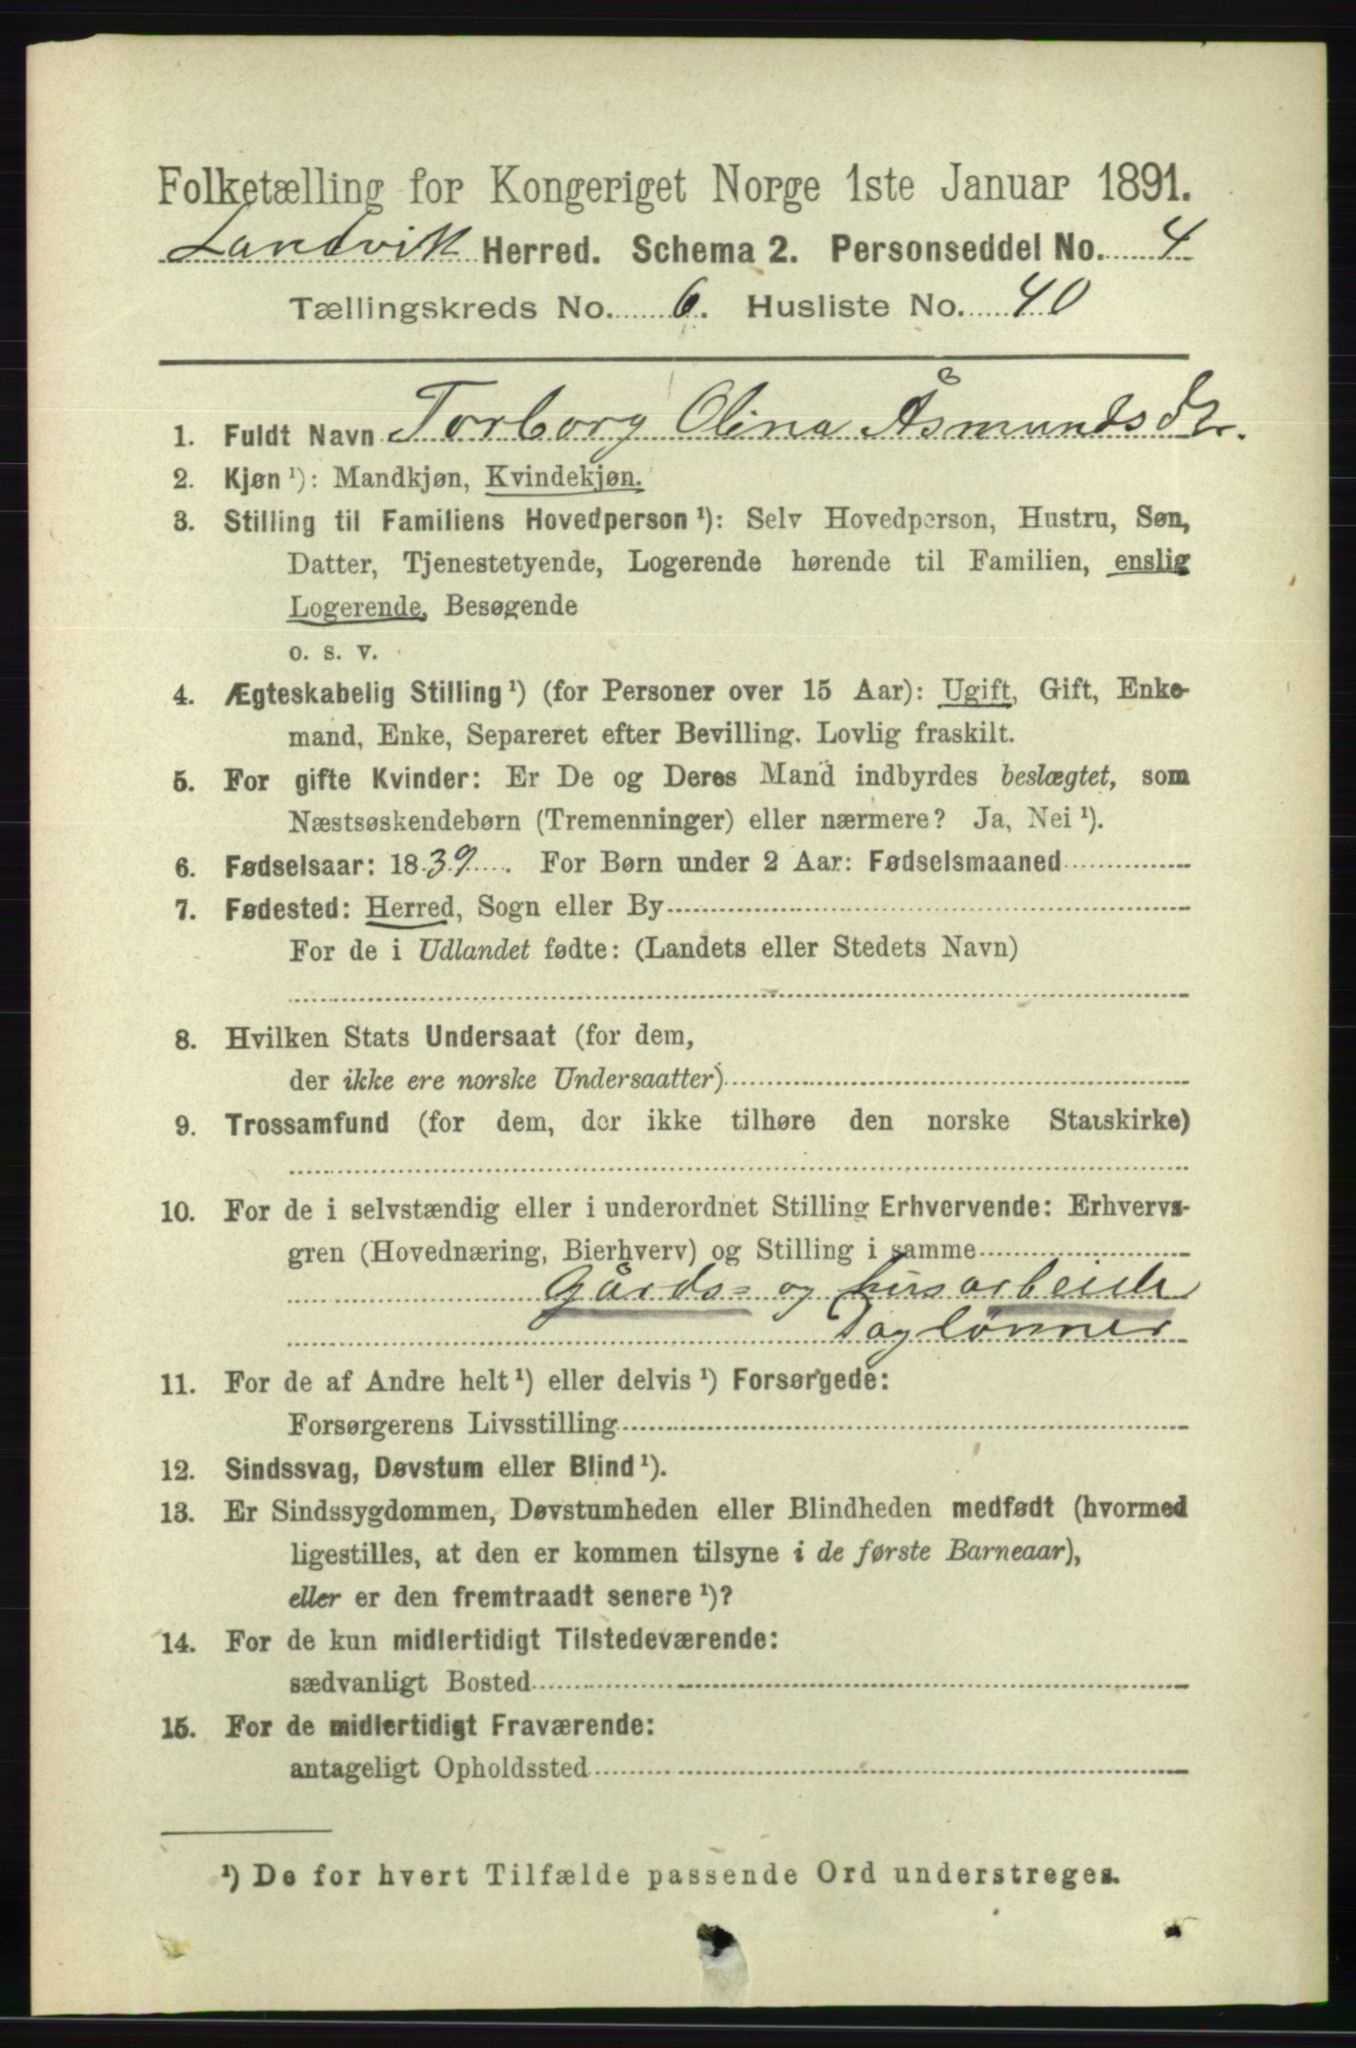 Folketælling for Kongeriget Norge 1ste Januar 1891.
Landvik Herred. Schema 2. Personseddel No. 4
Tællingskreds No. 6. Husliste No. 40
1. Fuldt Navn Torborg Olina Åsmunds Dtr.
2. Kjøn ¹): Mandkjøn, Kvindekjøn.
3. Stilling til Familiens Hovedperson ¹): Selv Hovedperson, Hustru, Søn,
Datter, Tjenestetyende, Logerende hørende til Familien, enslig
Logerende, Besøgende
o. s. v.
4. Ægteskabelig Stilling ¹) (for Personer over 15 Aar): Ugift, Gift, Enke-
mand, Enke, Separeret efter Bevilling. Lovlig fraskilt.
5. For gifte Kvinder: Er De og Deres Mand indbyrdes beslægtet, som
Næstsøskendebørn (Tremenninger) eller nærmere? Ja, Nei ¹).
6. Fødselsaar: 1839. For Børn under 2 Aar: Fødselsmaaned
7. Fødested: Herred, Sogn eller By
For de i Udlandet fødte: (Landets eller Stedets Navn)
8. Hvilken Stats Undersaat (for dem,
der ikke ere norske Undersaatter)
9. Trossamfund (for dem, der ikke tilhøre den norske Statskirke)
10. For de i selvstændig eller i underordnet Stilling Erhvervende: Erhvervs-
gren (Hovednæring, Bierhverv) og Stilling i samme
Gårds- og husarbeide
Daglønner
11. For de af Andre helt ¹) eller delvis ¹) Forsørgede:
Forsørgerens Livsstilling
12. Sindssvag, Døvstum eller Blind ¹).
13. Er Sindssygdommen, Døvstumheden eller Blindheden medfødt (hvormed
ligestilles, at den er kommen tilsyne i de første Barneaar),
eller er den fremtraadt senere ¹)?
14. For de kun midlertidigt Tilstedeværende:
sædvanligt Bosted
15. For de midlertidigt Fraværende:
antageligt Opholdssted
¹) De for hvert Tilfælde passende Ord understreges.